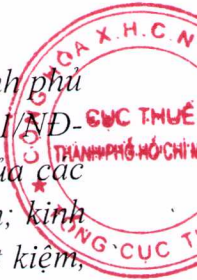 nh phủ
1/NĐ-
ủa các
n, kinh
t kiệm,
CỘNG HÒA X.H.C.N
CỤC THUẾ
THÀNH PHỐ HỒ CHÍ M
TỔNG CỤC T